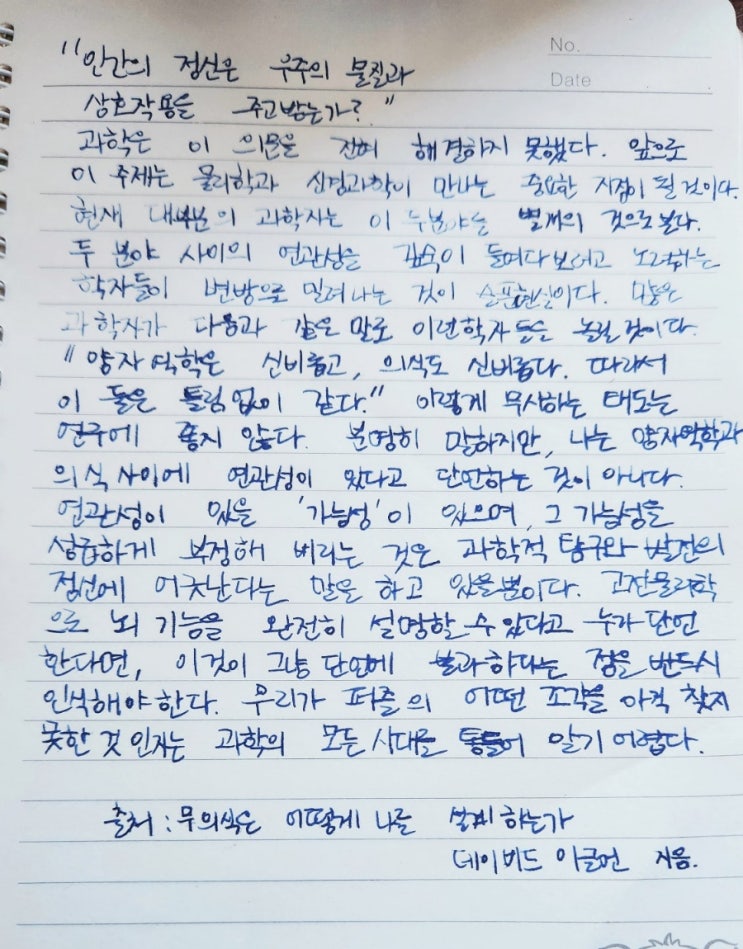 No.
Date
"인간의 정신은 우주의 물질과
상호작용을 주고받는가?"
과학은 이 의문을 전혀 해결하지 못했다. 앞으로
이 주제는 물리학과 신경과학이 만나는 중요한 지점이 될 것이다.
현재 대부분의 과학자는 이 두분야를 별개의 것으로 본다.
두 분야 사이의 연관성을 깊숙이 들여다보려고 노력하는
학자들이 변방으로 밀려나는 것이 슬픈현실이다. 많은
과학자가 다음과 같은 말로 이런학자들을 놀릴 것이다.
"양자역학은 신비롭고, 의식도 신비롭다. 따라서
이 둘은 틀림없이 같다." 이렇게 무시하는 태도는
연구에 좋지 않다. 분명히 말하지만, 나는 양자역학과
의식사이에 연관성이 있다고 단언하는 것이 아니다.
연관성이 있을 '가능성'이 있으며, 그 가능성을
성급하게 부정해 버리는 것은 과학적 탐구와 발전의
정신에 어긋난다는 말을 하고 있을뿐이다. 고전물리학
으로 뇌 기능을 완전히 설명할 수 있다고 누가 단언
한다면, 이것이 그냥 단언에 불과하다는 점을 반드시
인식해야한다. 우리가 퍼즐의 어떤 조각을 아직 찾지
못한 것 인지는 과학의 모든 시대를 통틀어 알기 어렵다.
출처 : 무의식은 어떻게 나를 설계하는가
데이비드 이글먼 지음.